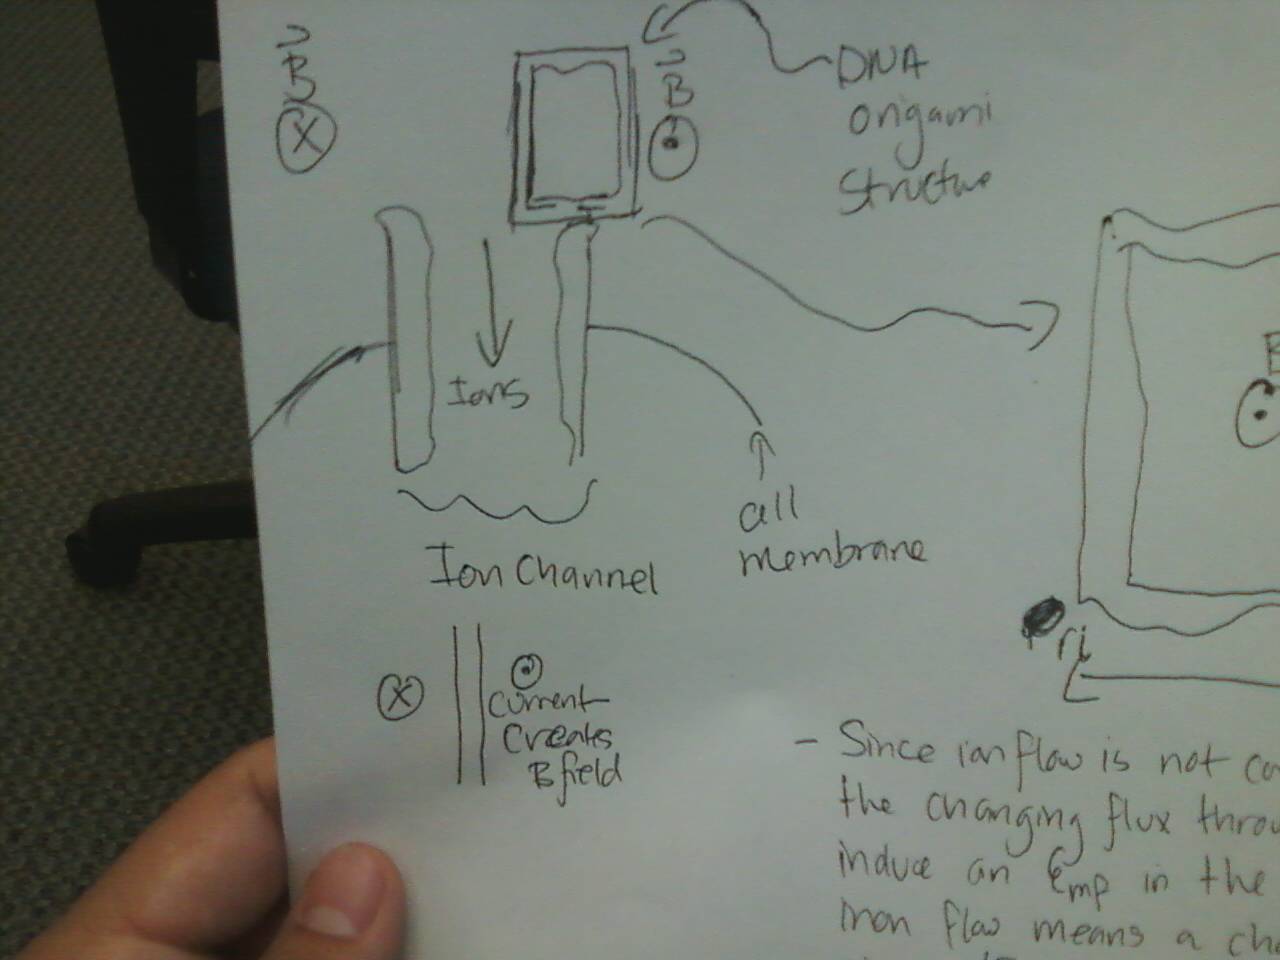 B
X
B
DNA
origami
Structure
Ions
B
Ion Channel
Cell
membrane
X
Current
Creates
B field
ri
- Since ion flow is not
the changing flux
induce an Emf in the
flow means a